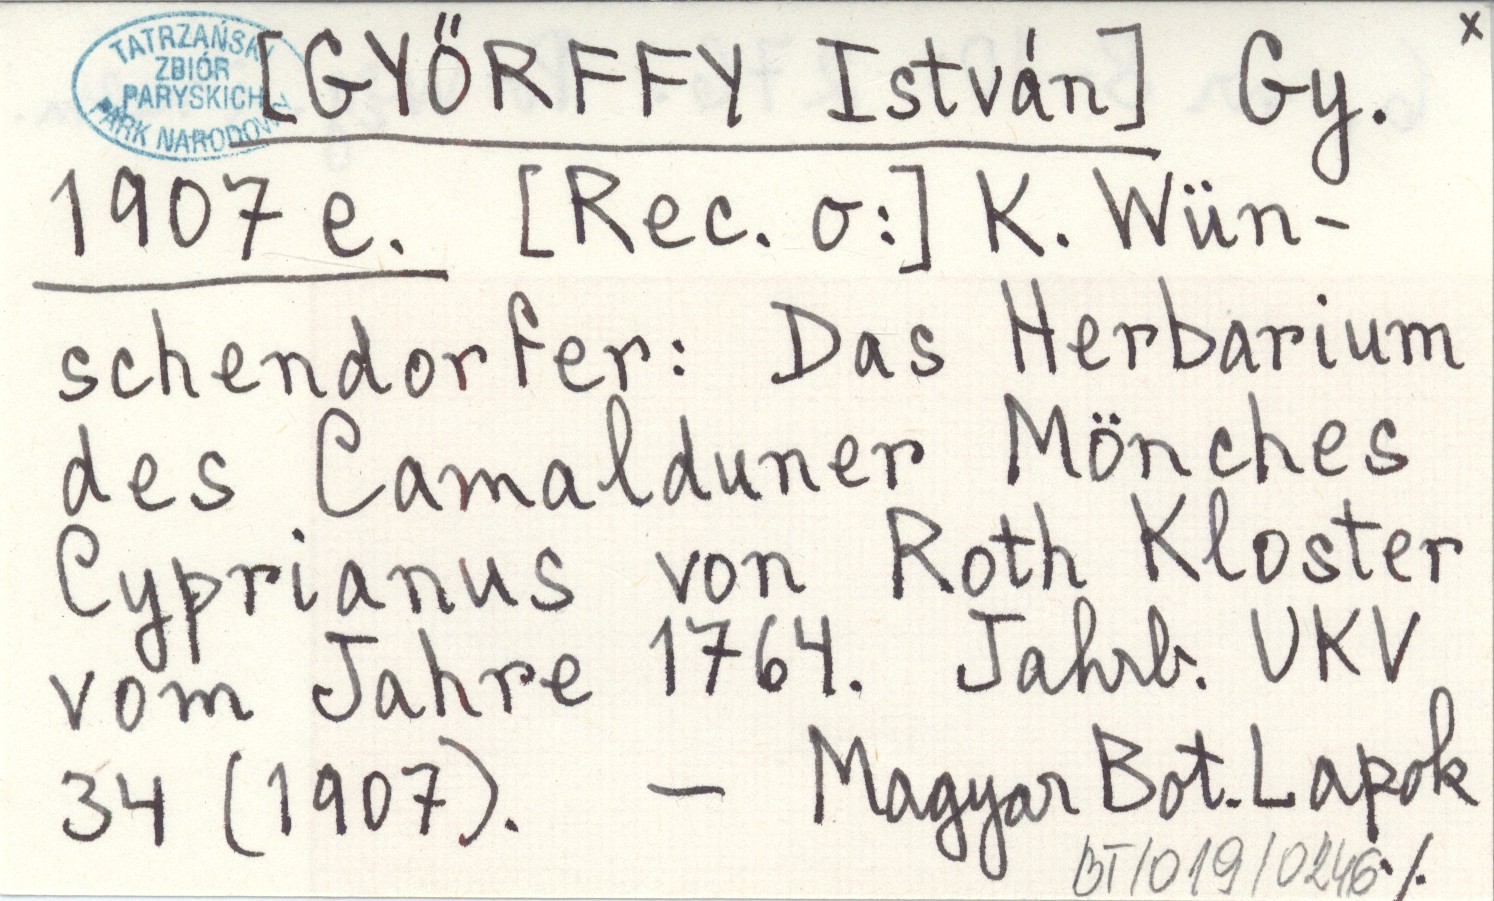 TATRZAŃSKI
ZBIÓR
PARYSKICH
PARK NARODOWY
[GYŐRFFY István] Gy. x
1907 e. [Rec. o:] K. Wün-
schendorfer: Das Herbarium
des Camalduner Mönches
Cyprianus von Roth Kloster
vom Jahre 1764. Jahrb. UKV
34 (1907). — Magyar Bot. Lapok
BT/019/0246 ·/.